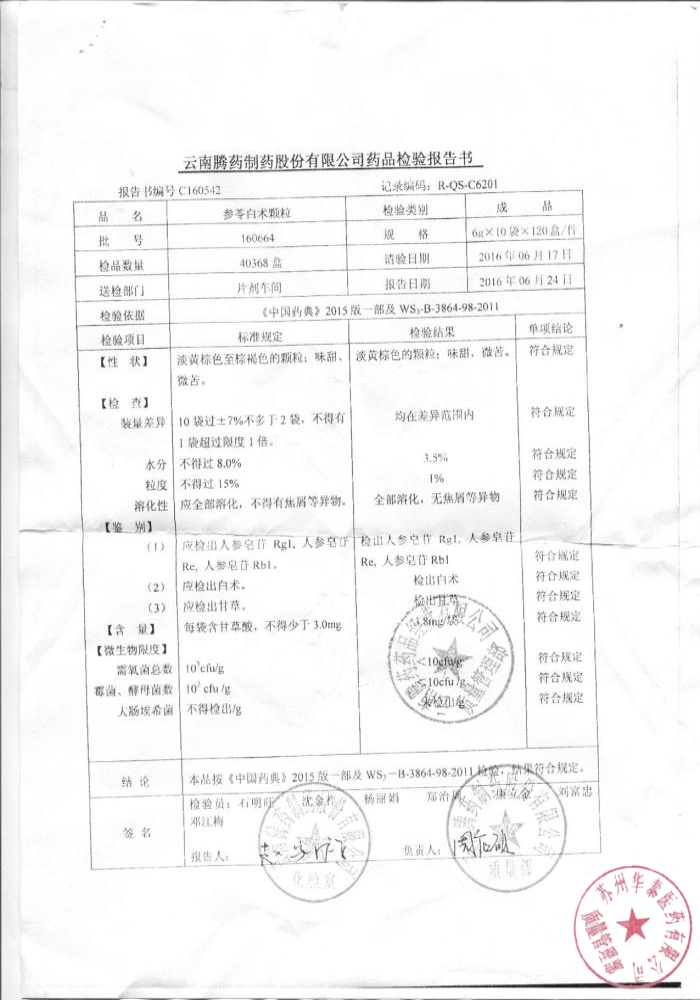 云南腾药制药股份有限公司药品检验报告书
报告书编号 C160542 记录编码：R-QS-C6201
品 名 参苓白术颗粒 检验类别 成 品
批 号 160664 规 格 6g×10 袋×120 盒/件
检品数量 40368 盒 请验日期 2016 年 06 月 17 日
送检部门 片剂车间 报告日期 2016 年 06 月 24 日
检验依据 《中国药典》2015 版一部及 WS₃-B-3864-98-2011
检验项目 标准规定 检验结果 单项结论
【性 状】 淡黄棕色至棕褐色的颗粒；味甜、 淡黄棕色的颗粒；味甜，微苦。 符合规定
微苦。
【检 查】
装量差异 10 袋过±7%不多于 2 袋，不得有 均在差异范围内 符合规定
1 袋超过限度 1 倍。
水分 不得过 8.0% 3.5% 符合规定
粒度 不得过 15% 1% 符合规定
溶化性 应全部溶化，不得有焦屑等异物。 全部溶化，无焦屑等异物 符合规定
【鉴 别】
（1） 应检出人参皂苷 Rg1, 人参皂苷 检出人参皂苷 Rg1, 人参皂苷
Re, 人参皂苷 Rb1。 Re, 人参皂苷 Rb1 符合规定
（2） 应检出白术。 检出白术 符合规定
（3） 应检出甘草。 检出甘草 符合规定
【含 量】 每袋含甘草酸，不得少于 3.0mg 3.8mg/袋 符合规定
【微生物限度】
需氧菌总数 10³cfu/g <10cfu/g 符合规定
霉菌、酵母菌数 10² cfu /g <10cfu /g 符合规定
大肠埃希菌 不得检出/g 未检出/g 符合规定
结 论 本品按《中国药典》2015 版一部及 WS₃－B-3864-98-2011 检验，结果符合规定。
签 名 检验员：石明旺 沈金 杨丽娟 郑治 康立金 刘富忠
邓江梅
报告人： 负责人：
化验室
质量部
苏州华泰医药有限公司
质量管理部